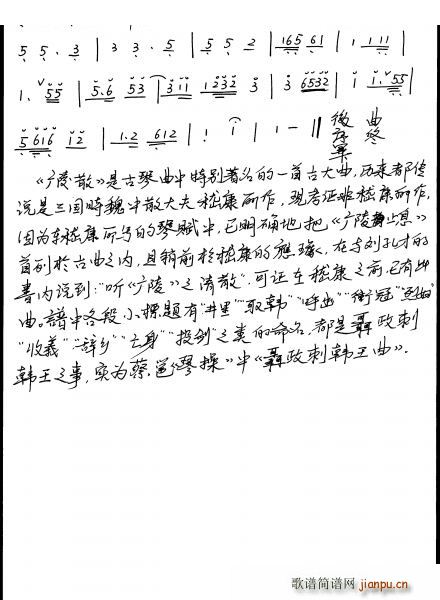 5 5 . 3 | 3 3 . 5 | 5 5 2 | 1 65 61 | 1 1 11 |
1. 55 | 5.6 53 | 3 11 1232 3 | 3 6532 | 1 1.55 |
5616 12 | 1.2 612 | 1 1 | 1 — ‖ 曲终
《广陵散》是古琴曲中特别著名的一首古大曲，历来都传
说是三国时魏中散大夫嵇康所作，现考证非嵇康所作，
因为嵇康所写的琴赋中，已明确地把《广陵止息》
首列於古曲之内，且稍前於嵇康的应璩，在与刘孔才的
書内说到："听《广陵》之清散"，可证在嵇康之前已有此
曲。譜中各段小標題有"井里""取韩""呼幽""衝冠"
"收義""辞乡""亡身""投剑"之类的命名，都是聂政刺
韩王之事，实为蔡邕《琴操》中《聂政刺韩王曲》．
歌谱简谱网
jianpu.cn